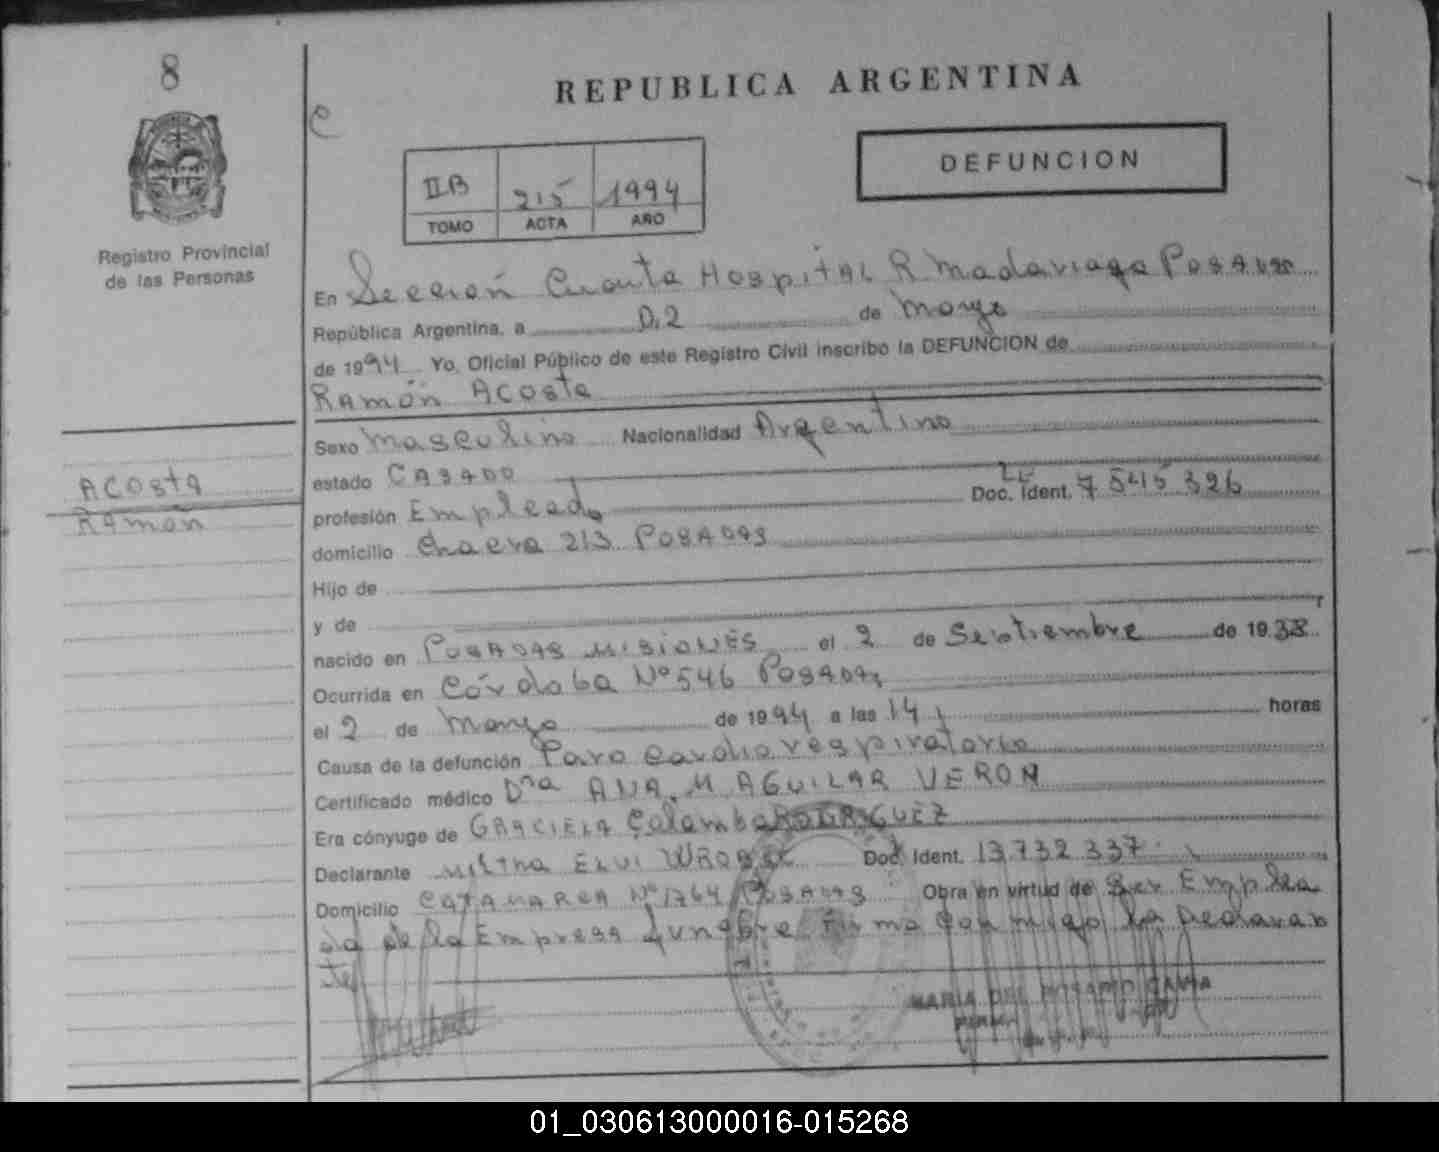 8
REPUBLICA ARGENTINA
DEFUNCION
IIB 215 1994
TOMO ACTA AÑO
Registro Provincial
de las Personas
En Sección Cuarta Hospital R Madariaga Posadas
República Argentina, a 02 de Marzo
de 1994 Yo, Oficial Público de este Registro Civil inscribo la DEFUNCION de
Ramón Acosta
Sexo Masculino Nacionalidad Argentino
estado CASADO
profesión Empleado Doc. Ident. LE 7 545 326
domicilio Chacra 213 POSADAS
Acosta
Ramón
Hijo de
y de
nacido en POSADAS MISIONES el 2 de Septiembre de 1938
Ocurrida en Córdoba Nº 546 Posadas
el 2 de Marzo de 1994 a las 14 horas
Causa de la defunción Paro Cardiorespiratorio
Certificado médico Dra ANA. M AGUILAR VERON
Era cónyuge de GRACIELA RODRIGUEZ
Declarante Doc Ident. 13.732.337
Domicilio CATAMARCA Nº 1764 POSADAS Obra en virtud de Ser Emplea
da de la Empresa Funebre Firma Conmigo la Declaran
te
MARIA DEL
01_030613000016-015268